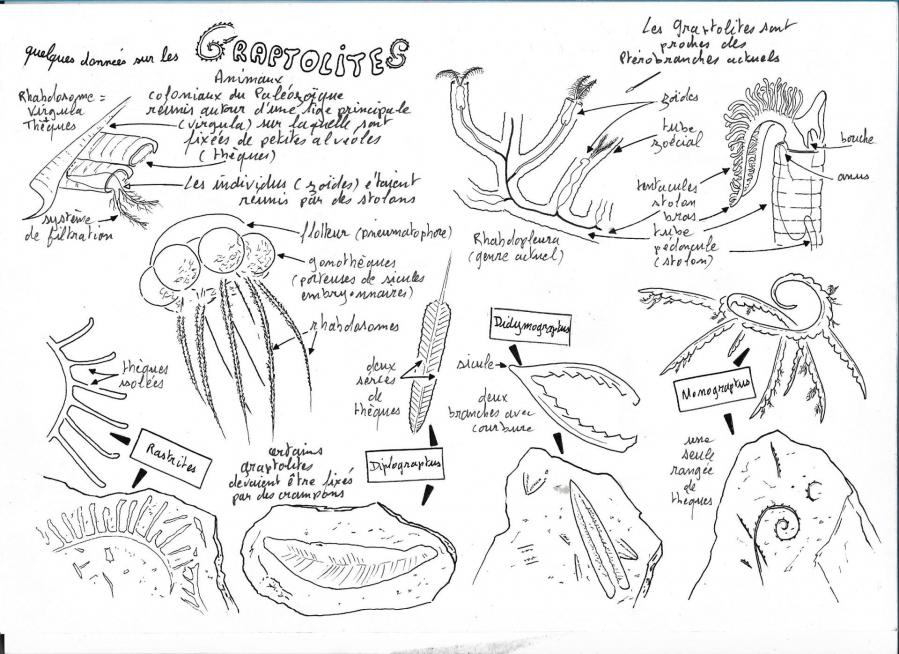 quelques données sur les GRAPTOLITES
Animaux
coloniaux du Paléozoïque
réunis autour d'une tige principale
(virgula) sur laquelle sont
fixées de petites alvéoles
(thèques)
Les individus (zoïdes) étaient
réunis par des stolons
Rhabdosome =
virgula
Thèques
système
de filtration
Les Graptolites sont
proches des
Ptérobranches actuels
zoïdes
tube
zoécial
tentacules
stolon
bras
tube
pédoncule
(stolon)
bouche
anus
Rhabdopleura
(genre actuel)
flotteur (pneumatophore)
gonothèques
(porteuses de sicules
embryonnaires)
rhabdosomes
thèques
isolées
Rastrites
certains
graptolites
devaient être fixés
par des crampons
deux
séries
de
thèques
Diplograptus
Didymograptus
sicule
deux
branches avec
courbure
Monograptus
une
seule
rangée
de
thèques